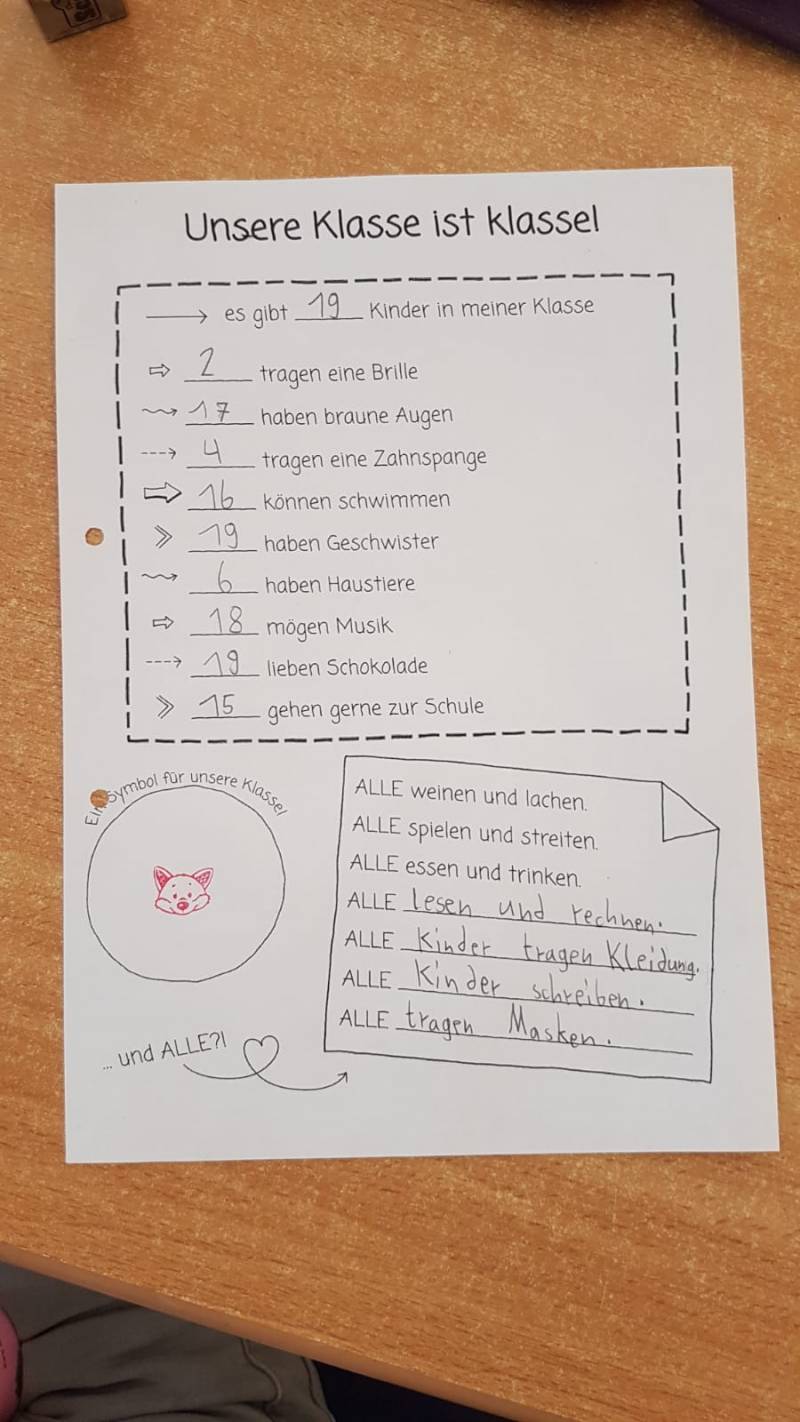 Unsere Klasse ist klasse!
es gibt 19 Kinder in meiner Klasse
2 tragen eine Brille
17 haben braune Augen
4 tragen eine Zahnspange
16 können schwimmen
19 haben Geschwister
6 haben Haustiere
18 mögen Musik
19 lieben Schokolade
15 gehen gerne zur Schule
Ein Symbol für unsere Klasse!
ALLE weinen und lachen.
ALLE spielen und streiten.
ALLE essen und trinken.
ALLE lesen und rechnen.
ALLE Kinder tragen Kleidung.
ALLE Kinder schreiben.
ALLE tragen Masken.
... und ALLE?!